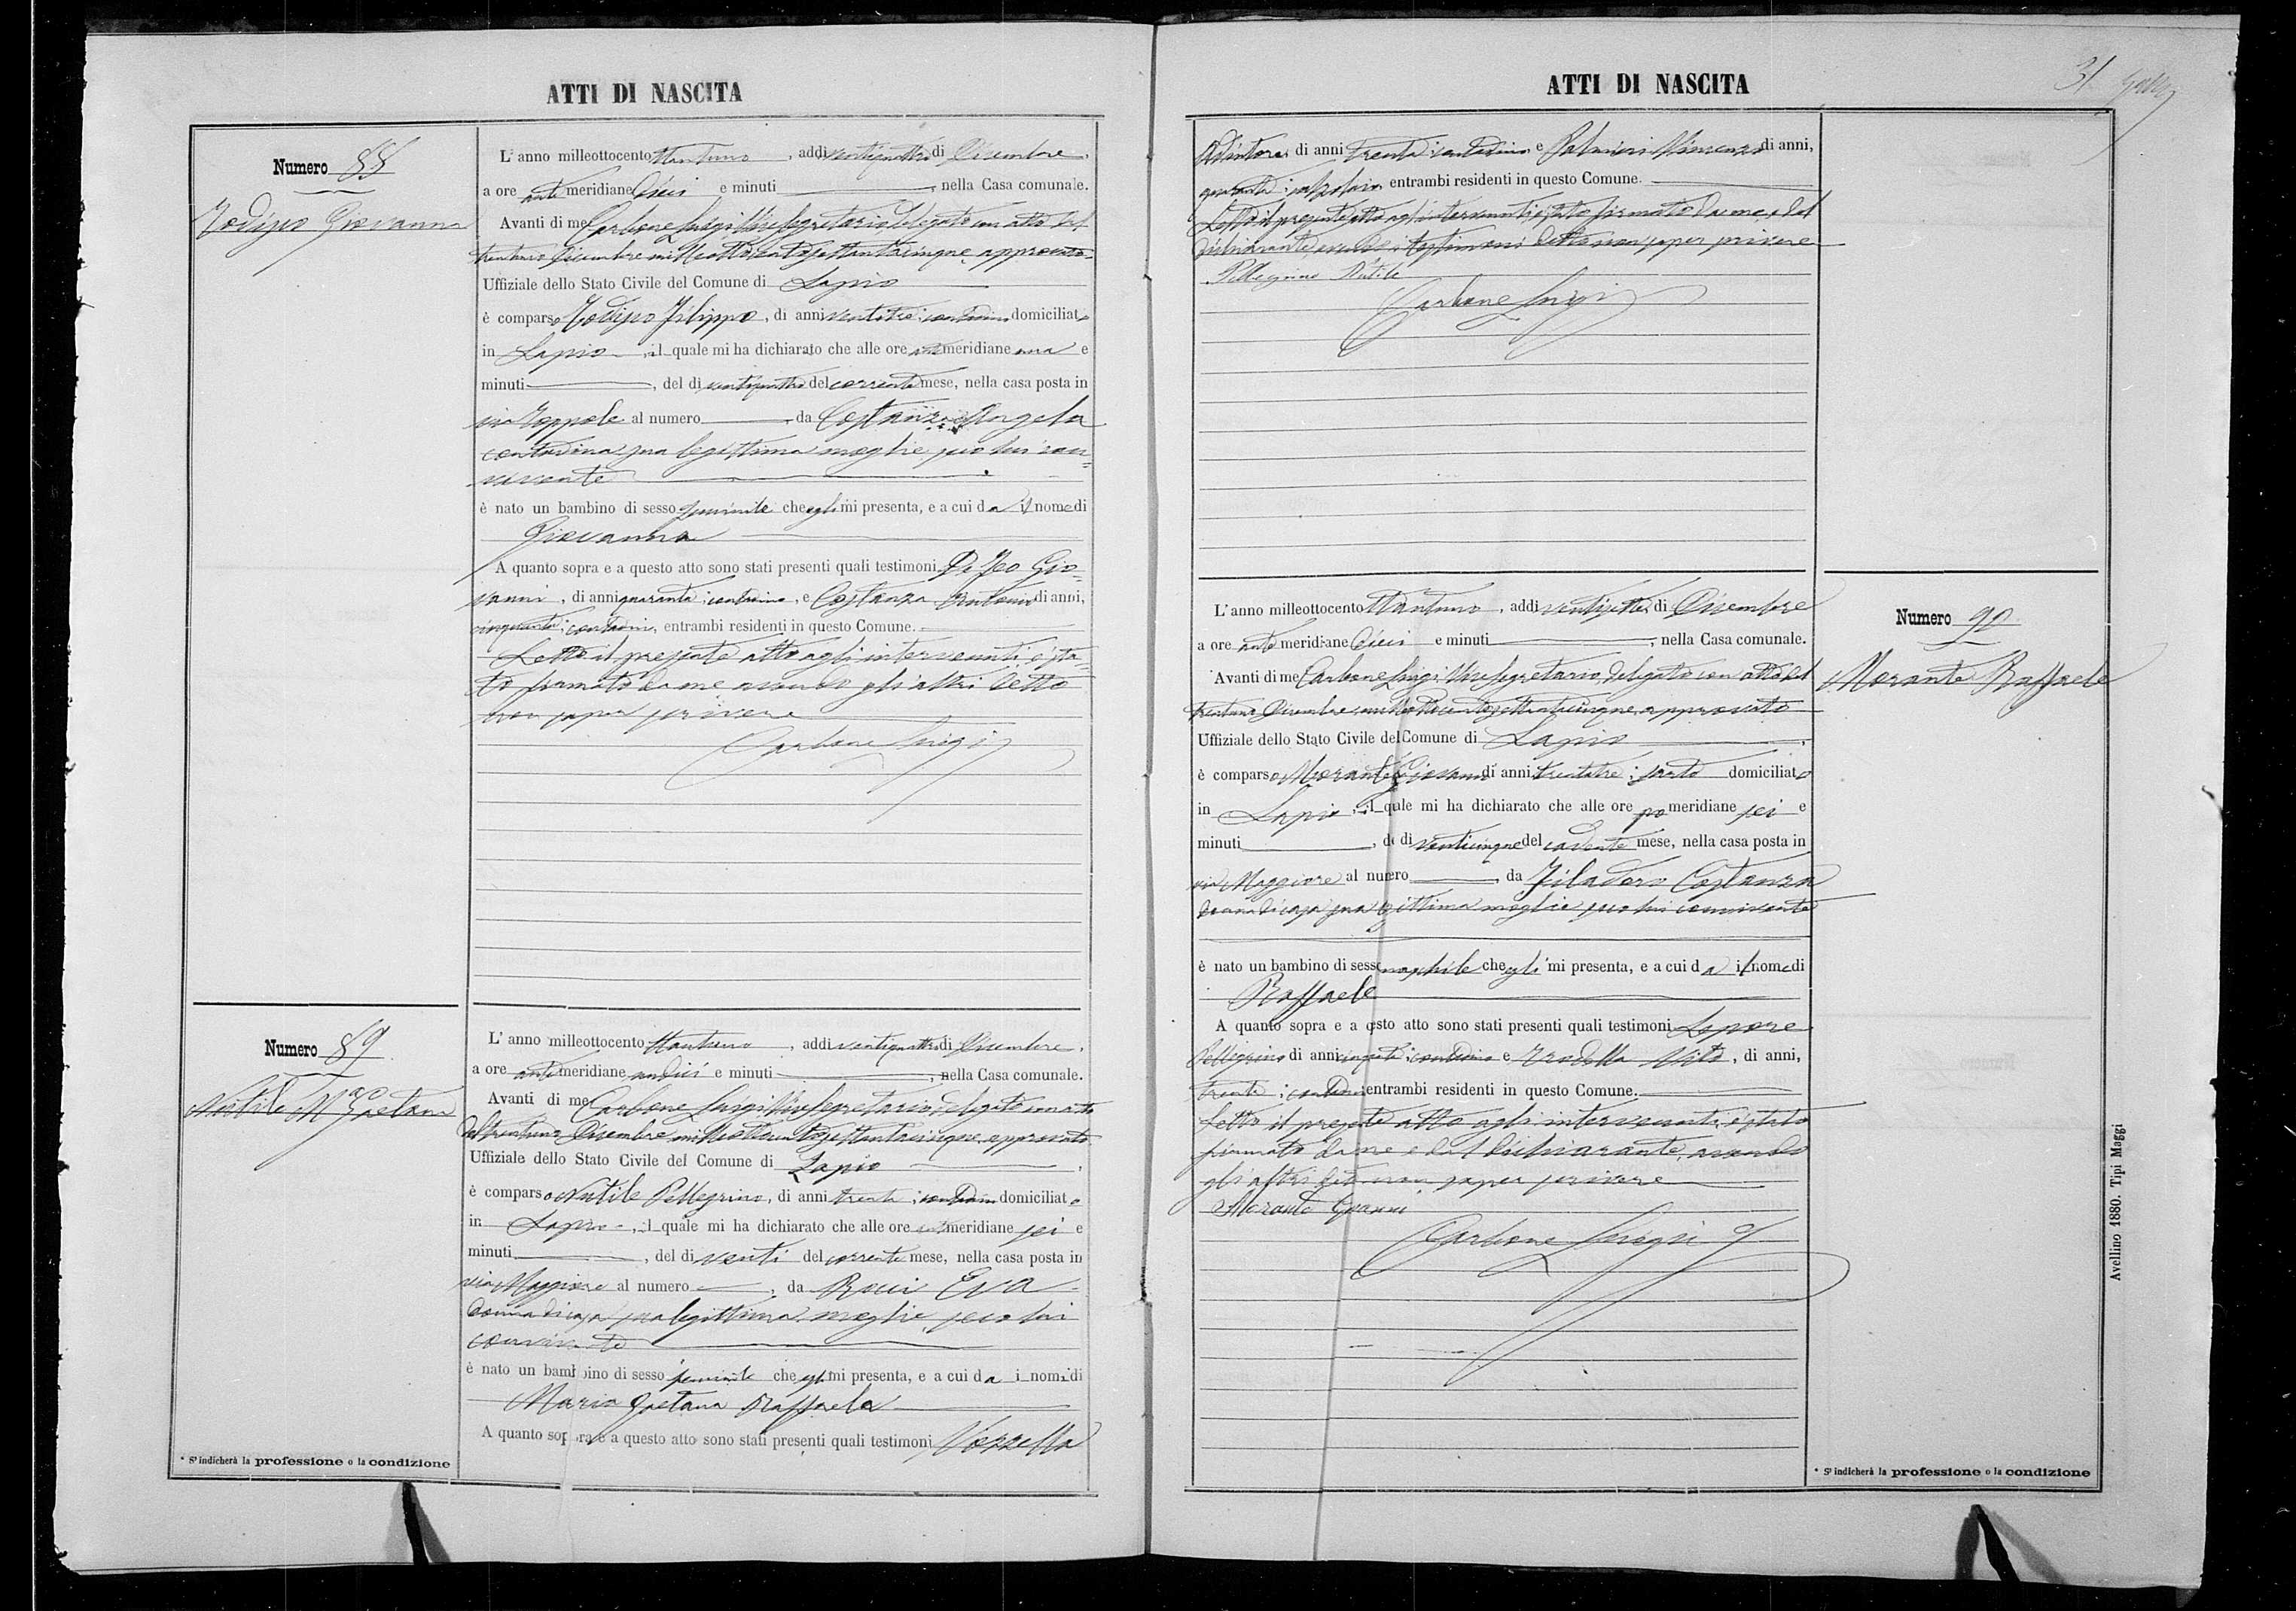 ATTI DI NASCITA
Numero 88
Iodipo Giovanna
L'anno milleottocento ottantuno, addi ventiquattro di Dicembre,
a ore ante meridiane dieci e minuti , nella Casa comunale.
Avanti di me Carbone Luigi Vice Segretario delegato con atto del
trentuno Dicembre milleottocentosettantacinque approvato
Uffiziale dello Stato Civile del Comune di Lapio
è comparso Filippo, di anni ventitre contadino domiciliato
in Lapio, il quale mi ha dichiarato che alle ore ante meridiane una e
minuti , del dì ventiquattro del corrente mese, nella casa posta in
via Toppole al numero da Costanza Angela
contadina sua legittima moglie seco lui con=
vivente
è nato un bambino di sesso femminile che egli mi presenta, e a cui da il nome di
Giovanna
A quanto sopra e a questo atto sono stati presenti quali testimoni De Feo Gio=
vanni, di anni quaranta contadino, e Costanza Antonio di anni,
cinquanta contadini, entrambi residenti in questo Comune.
Letto il presente atto agli intervenuti è sta=
to firmato da me avendo gli altri detto
non saper scrivere
Carbone Luigi
Numero 89
Nutile Ma Gaetana
L'anno milleottocento ottantuno, addi ventiquattro di Dicembre,
a ore ante meridiane undici e minuti , nella Casa comunale.
Avanti di me Carbone Luigi Vice Segretario delegato con atto
del trentuno Dicembre milleottocentosettantacinque approvato
Uffiziale dello Stato Civile del Comune di Lapio
è comparso Nutile Pellegrino, di anni trenta contadino domiciliato
in Lapio, il quale mi ha dichiarato che alle ore meridiane sei e
minuti , del dì venti del corrente mese, nella casa posta in
via Maggiore al numero , da Eva
donna di casa sua legittima moglie seco lui
convivente
è nato un bambino di sesso femminile che egli mi presenta, e a cui da i nomi di
Maria Gaetana Raffaela
A quanto sopra e a questo atto sono stati presenti quali testimoni Vozzella
* S'indicherà la professione o la condizione
ATTI DI NASCITA
31
di anni trenta contadino e Palmieri Vincenzo di anni,
quaranta calzolaio entrambi residenti in questo Comune.
Letto il presente atto agli intervenuti è stato firmato da me e dal
dichiarante avendo i testimoni detto non saper scrivere
Pellegrino Nutile
Carbone Luigi
Numero 90
Morante Raffaele
L'anno milleottocento ottantuno, addi ventisette di Dicembre
a ore ante meridiane dieci e minuti , nella Casa comunale.
Avanti di me Carbone Luigi Vice Segretario delegato con atto del
trentuno Dicembre milleottocentosettantacinque approvato
Uffiziale dello Stato Civile del Comune di Lapio
è comparso Morante Giovanni di anni trentatre sarto domiciliato
in Lapio, il quale mi ha dichiarato che alle ore po meridiane sei e
minuti , del dì venticinque del cadente mese, nella casa posta in
via Maggiore al numero , da Filadoro Costanza
donna di casa sua legittima moglie seco lui convivente
è nato un bambino di sesso maschile che egli mi presenta, e a cui da il nome di
Raffaele
A quanto sopra e a questo atto sono stati presenti quali testimoni Lepore
Pellegrino di anni contadino e Vito, di anni,
trenta contadini entrambi residenti in questo Comune.
Letto il presente atto agli intervenuti è stato
firmato da me e dal dichiarante, avendo
gli altri detto non saper scrivere
Morante Giovanni
Carbone Luigi
* S'indicherà la professione o la condizione
Avellino 1880. Tipi Maggi